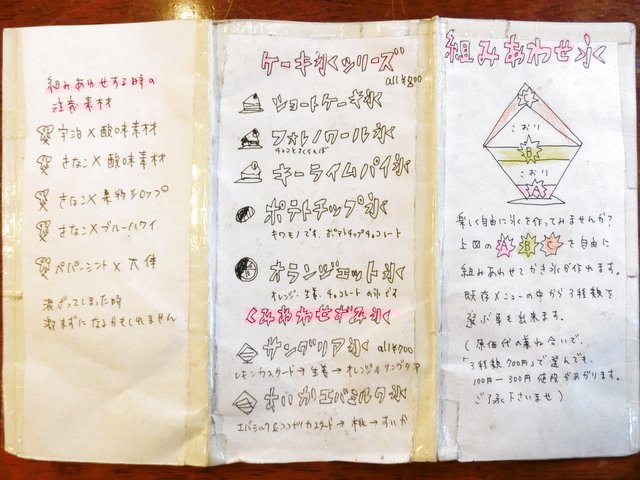 組みあわせする時の
注意素材
宇治×酸味素材
きなこ×酸味素材
きなこ×果物シロップ
きなこ×ブルーハワイ
ペパーミント×大体
混ざってしまった時
激まずになるかもしれません
ケーキ氷シリーズ
all¥800
ショートケーキ氷
フォレノワール氷
チョコとさくらんぼ
キーライムパイ氷
ポテトチップ氷
キワモノです。ポテトチップチョコレート
オランジェット氷
オレンジ、生姜、チョコレートの氷です
くみあわせずみ氷
サングリア氷 all¥700
レモンカスタード→生姜→オレンジ&サングリア
すいかエバミルク氷
エバミルク&ココナツカスタード→桃→すいか
組みあわせ氷
C
こおり
B
こおり
A
楽しく自由に氷を作ってみませんか?
上図のA B Cを自由に
組みあわせてかき氷が作れます。
既存メニューの中から3種類を
選ぶ事も出来ます。
(原価代の兼ね合いで、
「3種類700円」で選んでも、
100円〜300円値段があがります。
ご了承下さいませ)